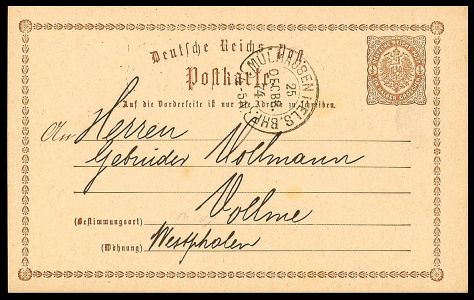 Deutsche Reichs-Post
Postkarte
MÜLHAUSEN i/ELS. BHF.
25
DECBR.
74
Auf die Vorderseite ist nur die Adresse zu schreiben.
An Herren
Gebrüder Vollmann
Vollme
(Bestimmungsort)
(Wohnung) Westphalen